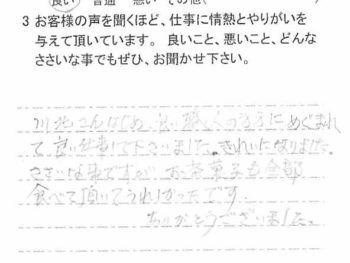 良い 普通 悪い その他( )
3 お客様の声を聞くほど、仕事に情熱とやりがいを
与えて頂いています。良いこと、悪いこと、どんな
ささいな事でもぜひ、お聞かせ下さい。
さんはじめ、良い職人の方々にめぐまれ
て良い仕事して下さいました。きれいになりました。
ささいな事ですが、お茶菓子も全部
食べて頂いてうれしかったです。
ありがとうございました。